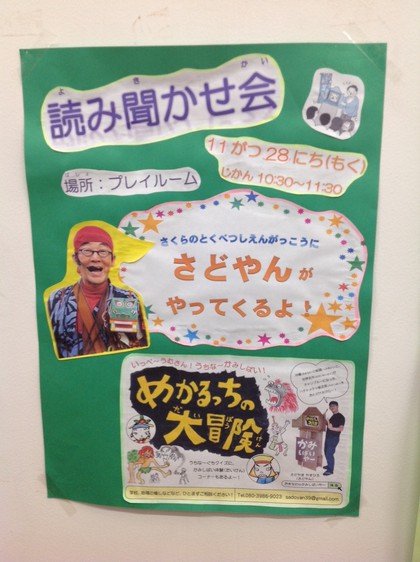 よ き かい
読み聞かせ会
11がつ28にち(もく)
じかん 10:30～11:30
ばしょ
場所：プレイルーム
さくらのとくべつしえんがっこうに
さどやんが
やってくるよ！
いっぺーうむさん！うちなーかみしばい！
めかるっちの
だいぼうけん
大冒険
うちなーぐちクイズに、
かみしばい体験(たいけん)
コーナーもあるよー！
かみ
しばい
やー